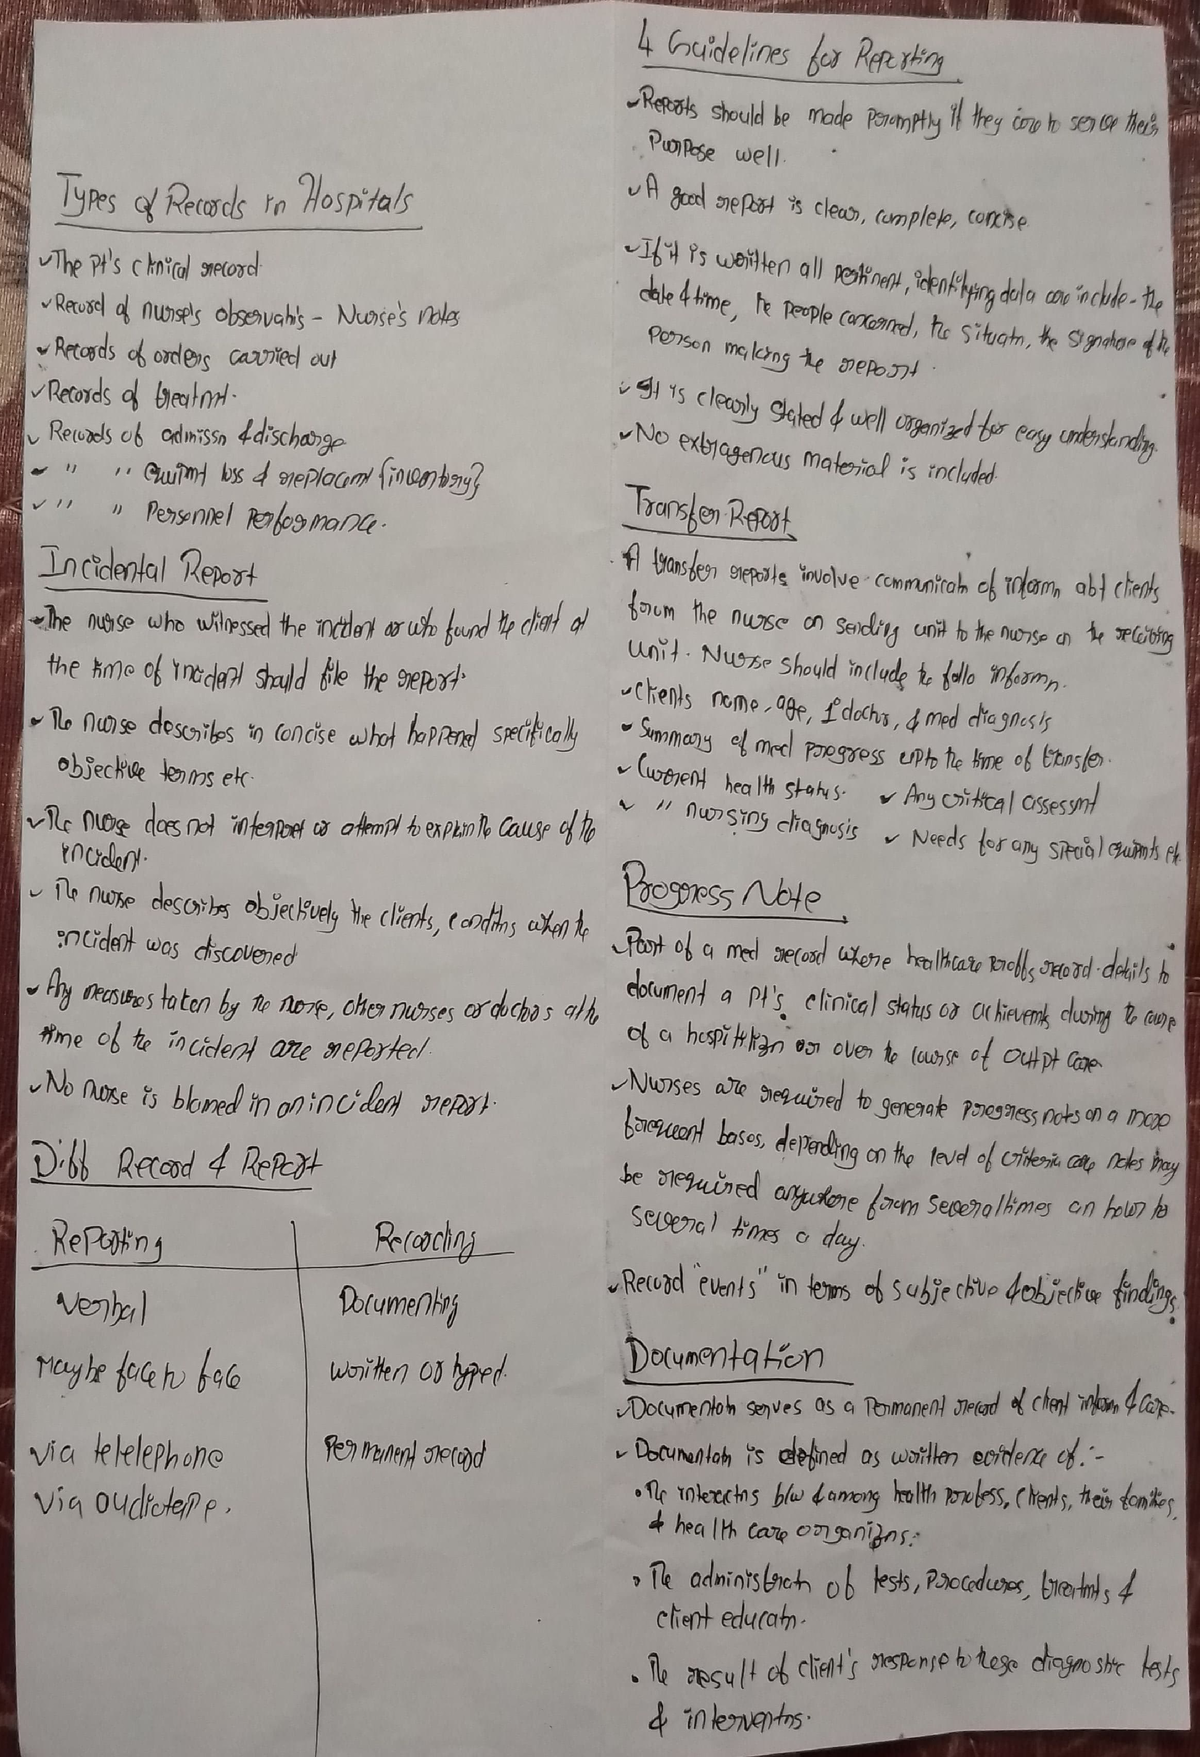 Types of Records in Hospitals
✓The Pt's clinical record
✓Record of nurse's observatn's - Nurse's notes
✓Records of orders carried out
✓Records of treatmt.
✓Records of admissn & discharge
✓ " " equimt loss & replacemt {inventory}
✓ " " Personnel Performance.
Incidental Report
✓The nurse who witnessed the incident or who found the client at
the time of incident should file the report.
✓The nurse describes in concise what happened specifically
objective terms etc.
✓The nurse does not interpret or attempt to explain the cause of the
incident.
✓The nurse describes objectively the clients, conditns when the
incident was discovered
✓Any measures taken by the nurse, other nurses or doctors at the
time of the incident are reported.
✓No nurse is blamed in an incident report.
Diff Record & Report
Reporting Recording
Verbal Documenting
Maybe face to face written or typed.
via telelephone Permanent record
via audiotape.
4 Guidelines for Reporting
✓Reports should be made promptly if they are to serve their
Purpose well.
✓A good report is clear, complete, concise
✓If it is written all pertinent, identifying data are include - the
date & time, the people concerned, the situatn, the signature of the
person making the report.
✓It is clearly stated & well organized for easy understanding.
✓No extragenous material is included.
Transfer Report
A transfer reports involve communicatn of informn abt clients
from the nurse on sending unit to the nurse on the receiving
unit. Nurse should include the follo informn.
✓Clients name, age, 1° doctor, & med diagnosis
✓Summary of med progress upto the time of transfer.
✓Current health status. ✓Any critical assessmt
✓ " nursing diagnosis ✓Needs for any special equimts etc
Progress Note
✓Part of a med record where healthcare proffs record details to
document a Pt's clinical status or achievemts during the course
of a hospitlizn or over the course of outpt care.
✓Nurses are required to generate progress notes on a more
frequent bases, depending on the level of criteria care notes may
be required anywhere from several times an hour to
several times a day.
✓Record "events" in terms of subjective & objective findings.
Documentation
✓Documentatn serves as a Permanent record of client informn & care.
✓Documentatn is defined as written evidence of:-
•The interactns b/w & among health profess, clients, their families,
& health care organizns.
•The administratn of tests, procedures, treatmts &
client educatn.
•The result of client's response to these diagnostic tests
& interventns.